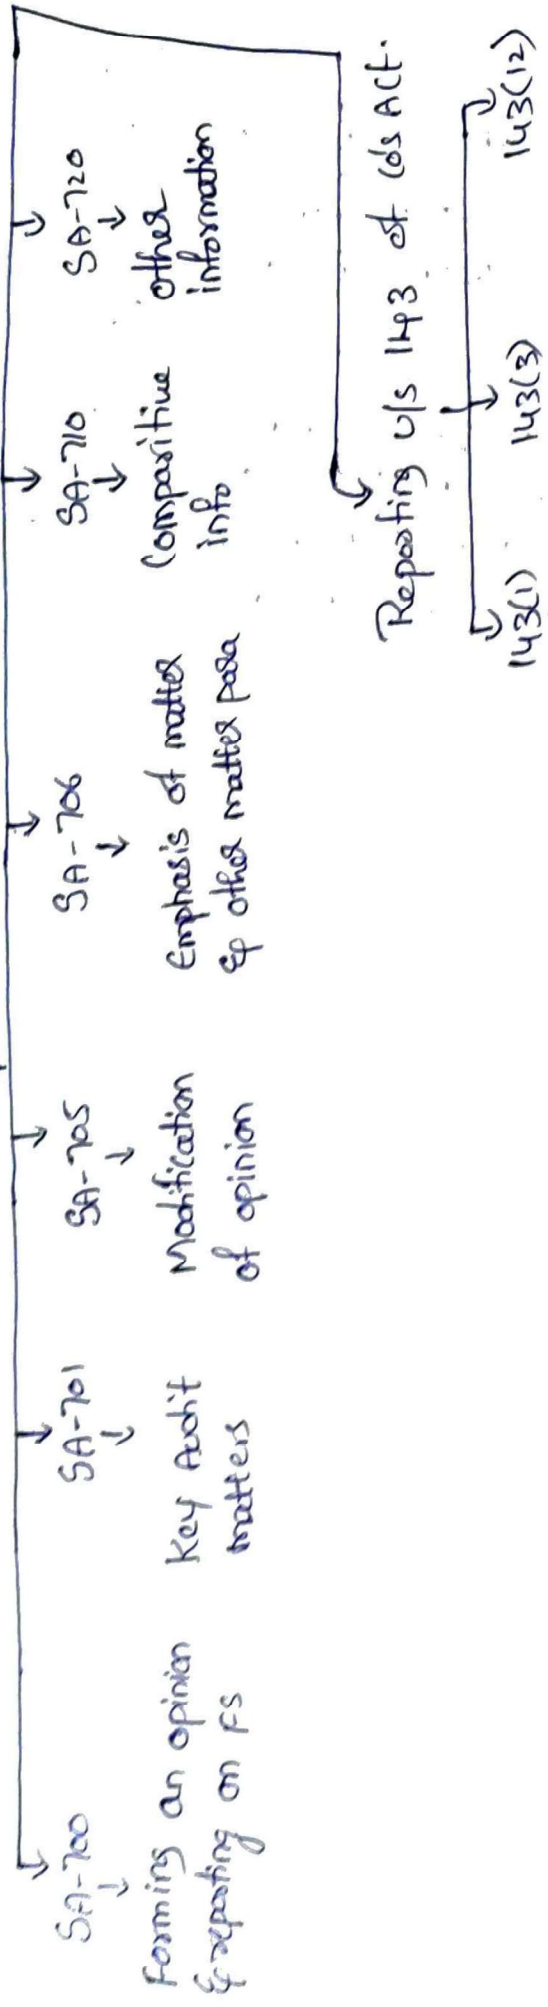 SA-700
Forming an opinion
& reporting on FS
SA-701
Key Audit
matters
SA-705
Modification
of opinion
SA-706
Emphasis of matter
& other matter para
SA-710
Comparitive
info
SA-720
other
information
Reporting u/s 143 of Co's Act.
143(1)
143(3)
143(12)